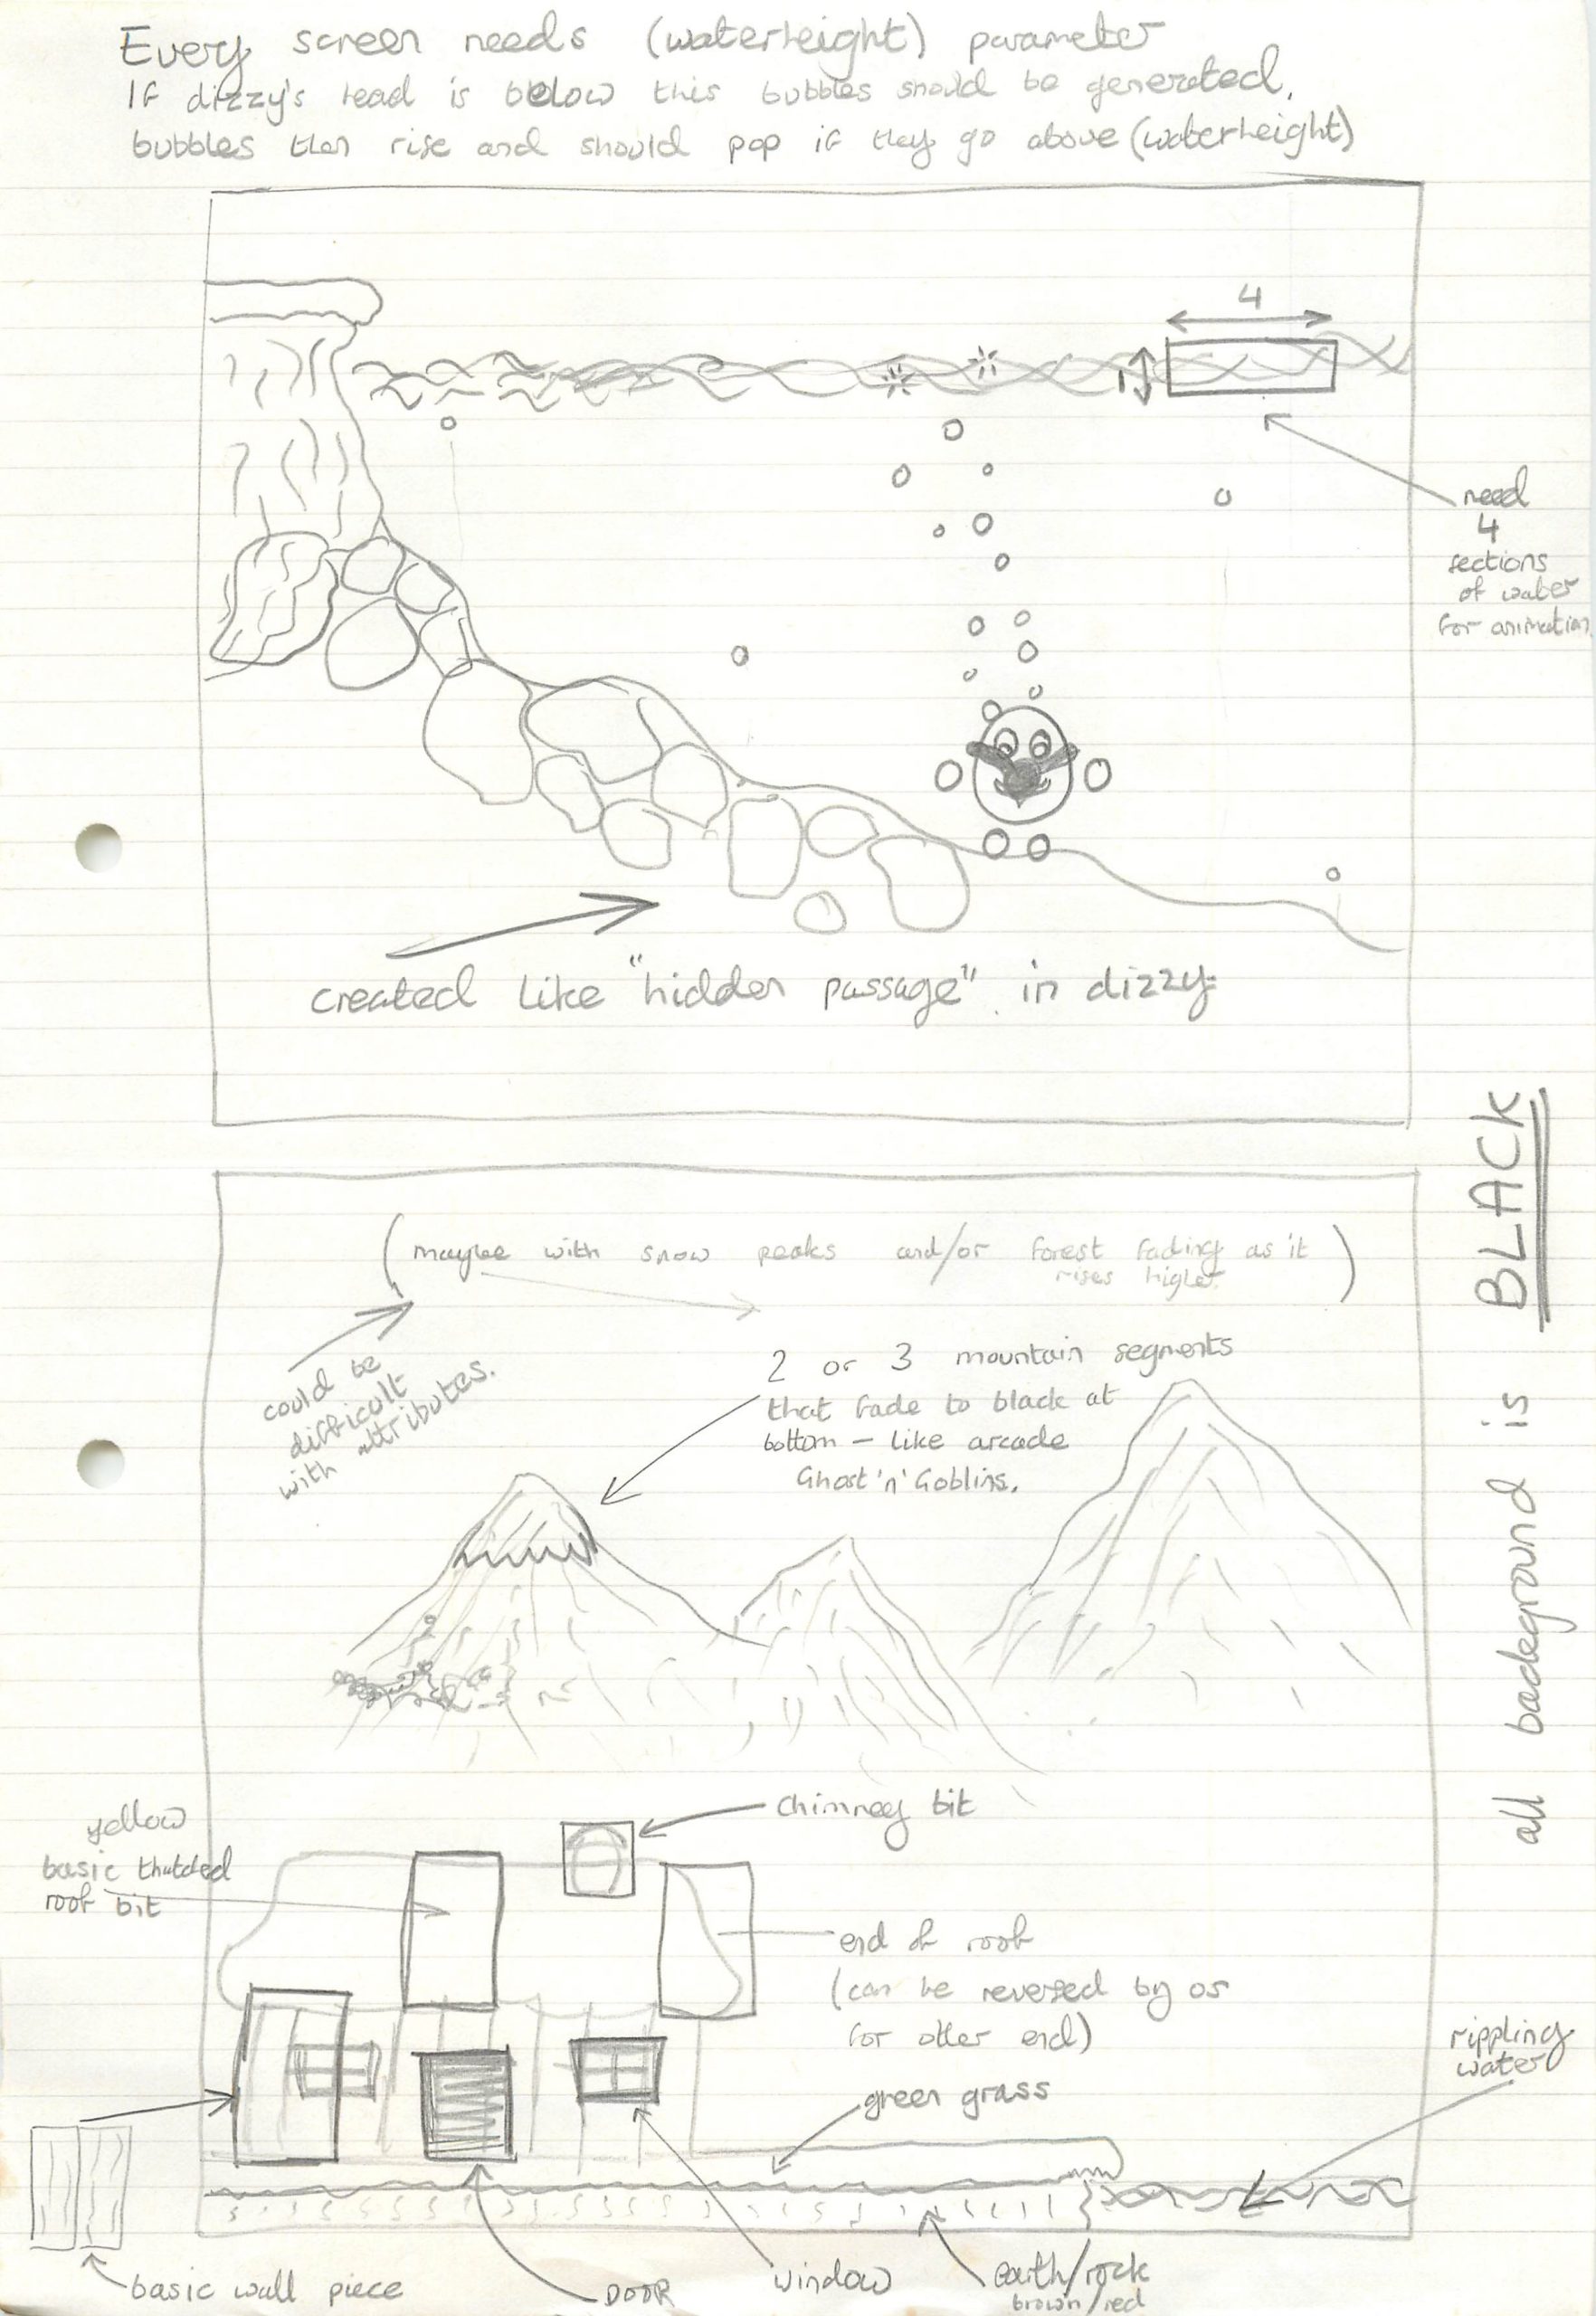 Every screen needs (waterheight) parameter
If dizzy's head is below this bubbles should be generated,
bubbles then rise and should pop if they go above (waterheight)
4
1
need
4
sections
of water
for animation
created like "hidden passage" in dizzy
(maybe with snow peaks and/or forest fading as it
rises higher)
could be
difficult
with attributes.
2 or 3 mountain segments
that fade to black at
bottom – like arcade
Ghost 'n' Goblins.
all background is BLACK
chimney bit
yellow
basic thatched
roof bit
end of roof
(can be reversed by os
for other end)
green grass
rippling
water
basic wall piece
DOOR
window
earth/rock
brown/red